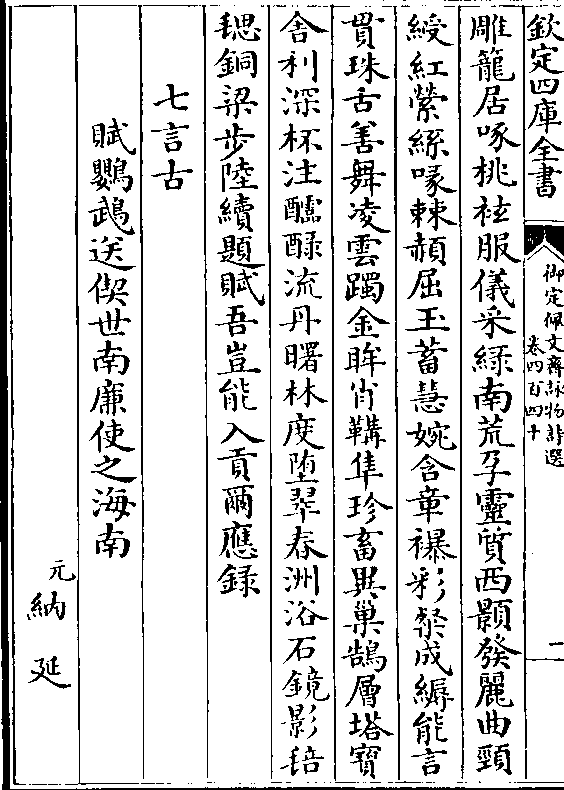 欽定四庫全書
御定佩文齋詠物詩選
卷四百四十
一
雕籠居啄桃袨服儀采綠南荒孕靈質西顥發麗曲頸
綬紅縈繇喙棘頳屈玉蓄慧婉含章襮彩粲成縟能言
貫珠舌善舞凌雲躅金眸肖鞲隼珍畜異巢鵠層塔寶
舍利深杯注醽醁流丹曙林度墮翠春洲浴石鏡影䎖
毸銅梁步陸續題賦吾豈能入貢爾應録
七言古
賦鸚鵡送偰世南廉使之海南
元納延